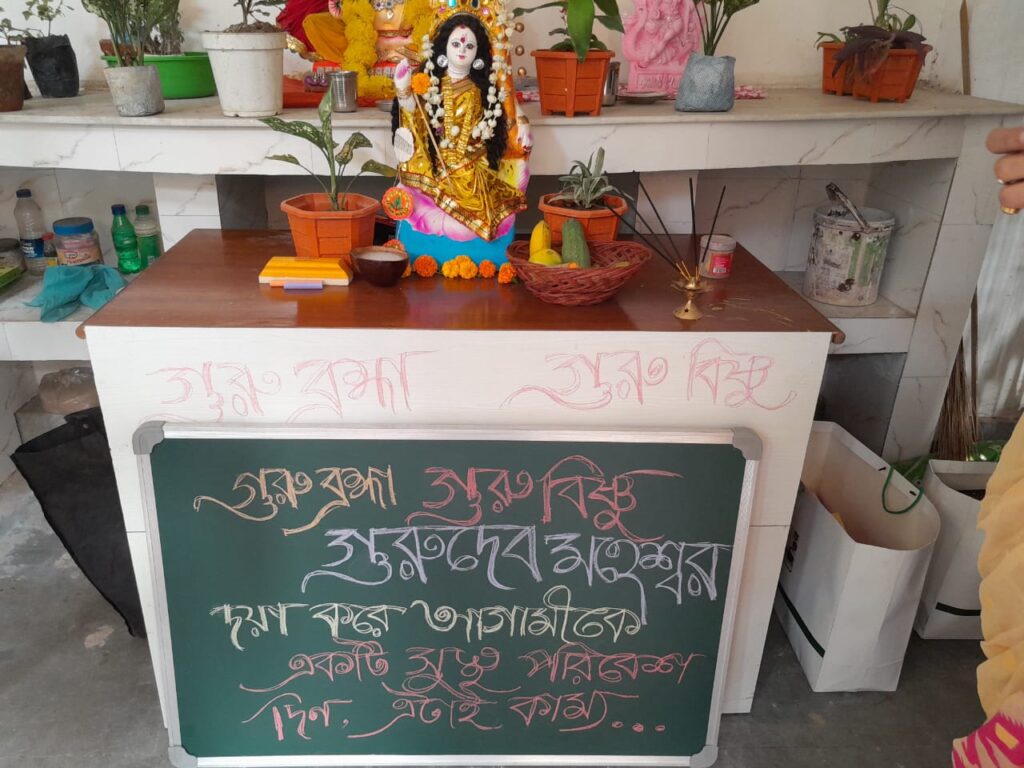 গুরু ব্রহ্মা গুরু বিষ্ণু
গুরু ব্রহ্মা গুরু বিষ্ণু
গুরুদেব মহেশ্বর
দয়া করে আগামীকে
একটি সুস্থ পরিবেশ
দিন, এটাই কাম্য...